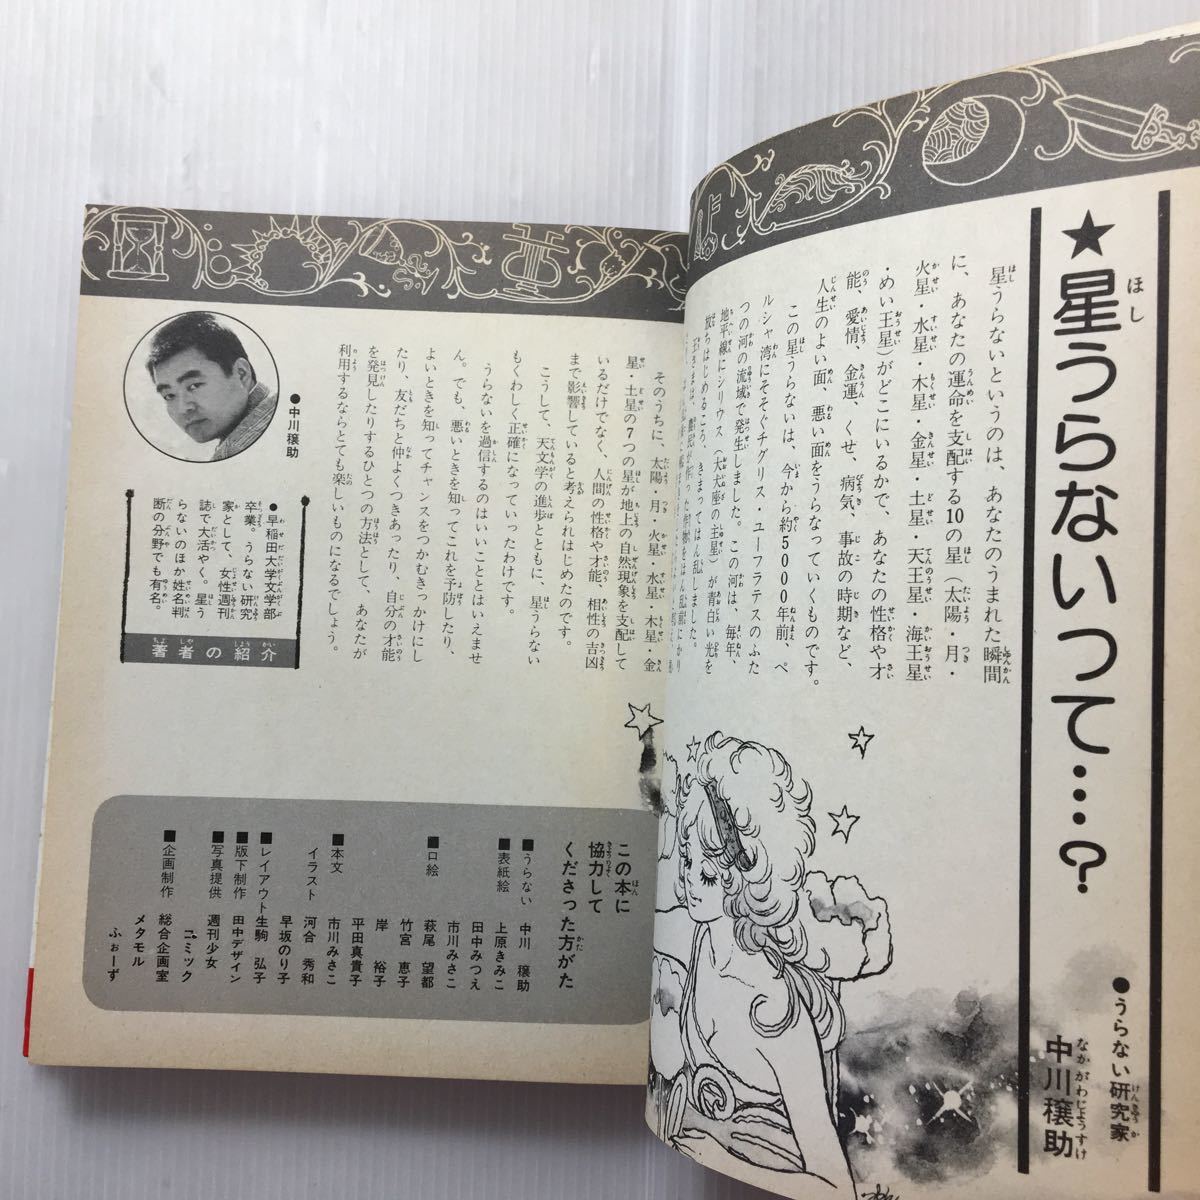 ★星うらないって…?
●うらない研究家
中川穣助
星うらないというのは、あなたのうまれた瞬間
に、あなたの運命を支配する10の星（太陽・月・
火星・水星・木星・金星・土星・天王星・海王星
・めい王星）がどこにいるかで、あなたの性格や才
能、愛情、金運、くせ、病気、事故の時期など、
人生のよい面、悪い面をうらなっていくものです。
この星うらないは、今から約5000年前、ペ
ルシャ湾にそそぐチグリス・ユーフラテスのふた
つの河の流域で発生しました。この河は、毎年、
地平線にシリウス（大犬座の主星）が青白い光を
放ちはじめるころ、きまってはん乱しました。
そのうちに、太陽・月・火星・水星・木星・金
星・土星の7つの星が地上の自然現象を支配して
いるだけでなく、人間の性格や才能、相性の吉凶
まで影響していると考えられはじめたのです。
こうして、天文学の進歩とともに、星うらない
もくわしく正確になっていったわけです。
うらないを過信するのはいいこととはいえませ
ん。でも、悪いときを知ってこれを予防したり、
よいときを知ってチャンスをつかむきっかけにし
たり、友だちと仲よくつきあったり、自分の才能
を発見したりするひとつの方法として、あなたが
利用するならとても楽しいものになるでしょう。
●中川穣助
著者の紹介
●早稲田大学文学部
卒業。うらない研究
家として、女性週刊
誌で大活やく。星う
らないのほか姓名判
断の分野でも有名。
この本に
協力して
くださった方がた
■うらない 中川 穣助
■表紙絵 上原きみこ
田中みつえ
市川みさこ
■口絵 萩尾 望都
竹宮 恵子
岸 裕子
平田真貴子
■本文
イラスト
市川みさこ
河合 秀和
早坂のり子
■レイアウト 生駒 弘子
■版下制作 田中デザイン
■写真提供 週刊少女
コミック
■企画制作 総合企画室
メタモル
ふぉーず